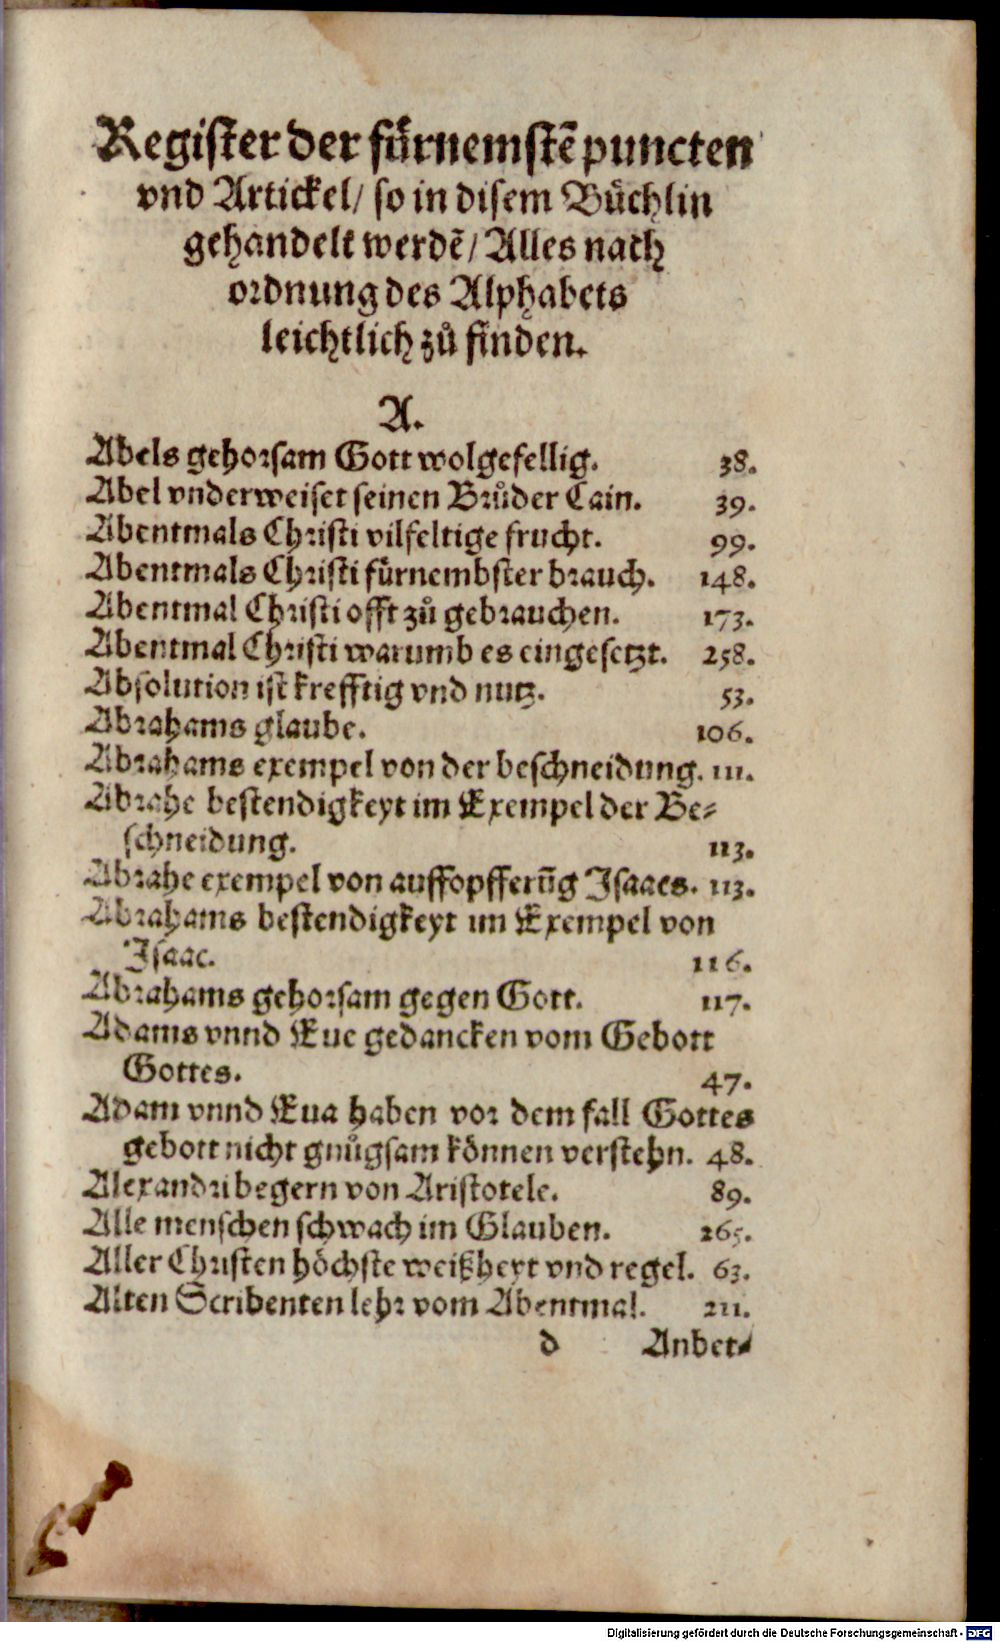 Register der fürnemstē puncten
vnd Artickel/ so in disem Büchlin
gehandelt werdē/ Alles nach
ordnung des Alphabets
leichtlich zů finden.
A.
Abels gehorsam Gott wolgefellig. 38.
Abel vnderweiset seinen Brůder Cain. 39.
Abentmals Christi vilfeltige frucht. 99.
Abentmals Christi fürnembster brauch. 148.
Abentmal Christi offt zů gebrauchen. 173.
Abentmal Christi warumb es eingesetzt. 258.
Absolution ist krefftig vnd nutz. 53.
Abrahams glaube. 106.
Abrahams exempel von der beschneidung. 111.
Abrahe bestendigkeyt im Exempel der Be-
schneidung. 113.
Abrahe exempel von auffopfferūg Isaacs. 113.
Abrahams bestendigkeyt im Exempel von
Isaac. 116.
Abrahams gehorsam gegen Gott. 117.
Adams vnnd Eue gedancken vom Gebott
Gottes. 47.
Adam vnnd Eua haben vor dem fall Gottes
gebott nicht gnůgsam können verstehn. 48.
Alexandri begern von Aristotele. 89.
Alle menschen schwach im Glauben. 265.
Aller Christen höchste weißheyt vnd regel. 63.
Alten Scribenten lehr vom Abentmal. 211.
d Anbet-
Digitalisierung gefördert durch die Deutsche Forschungsgemeinschaft - DFG